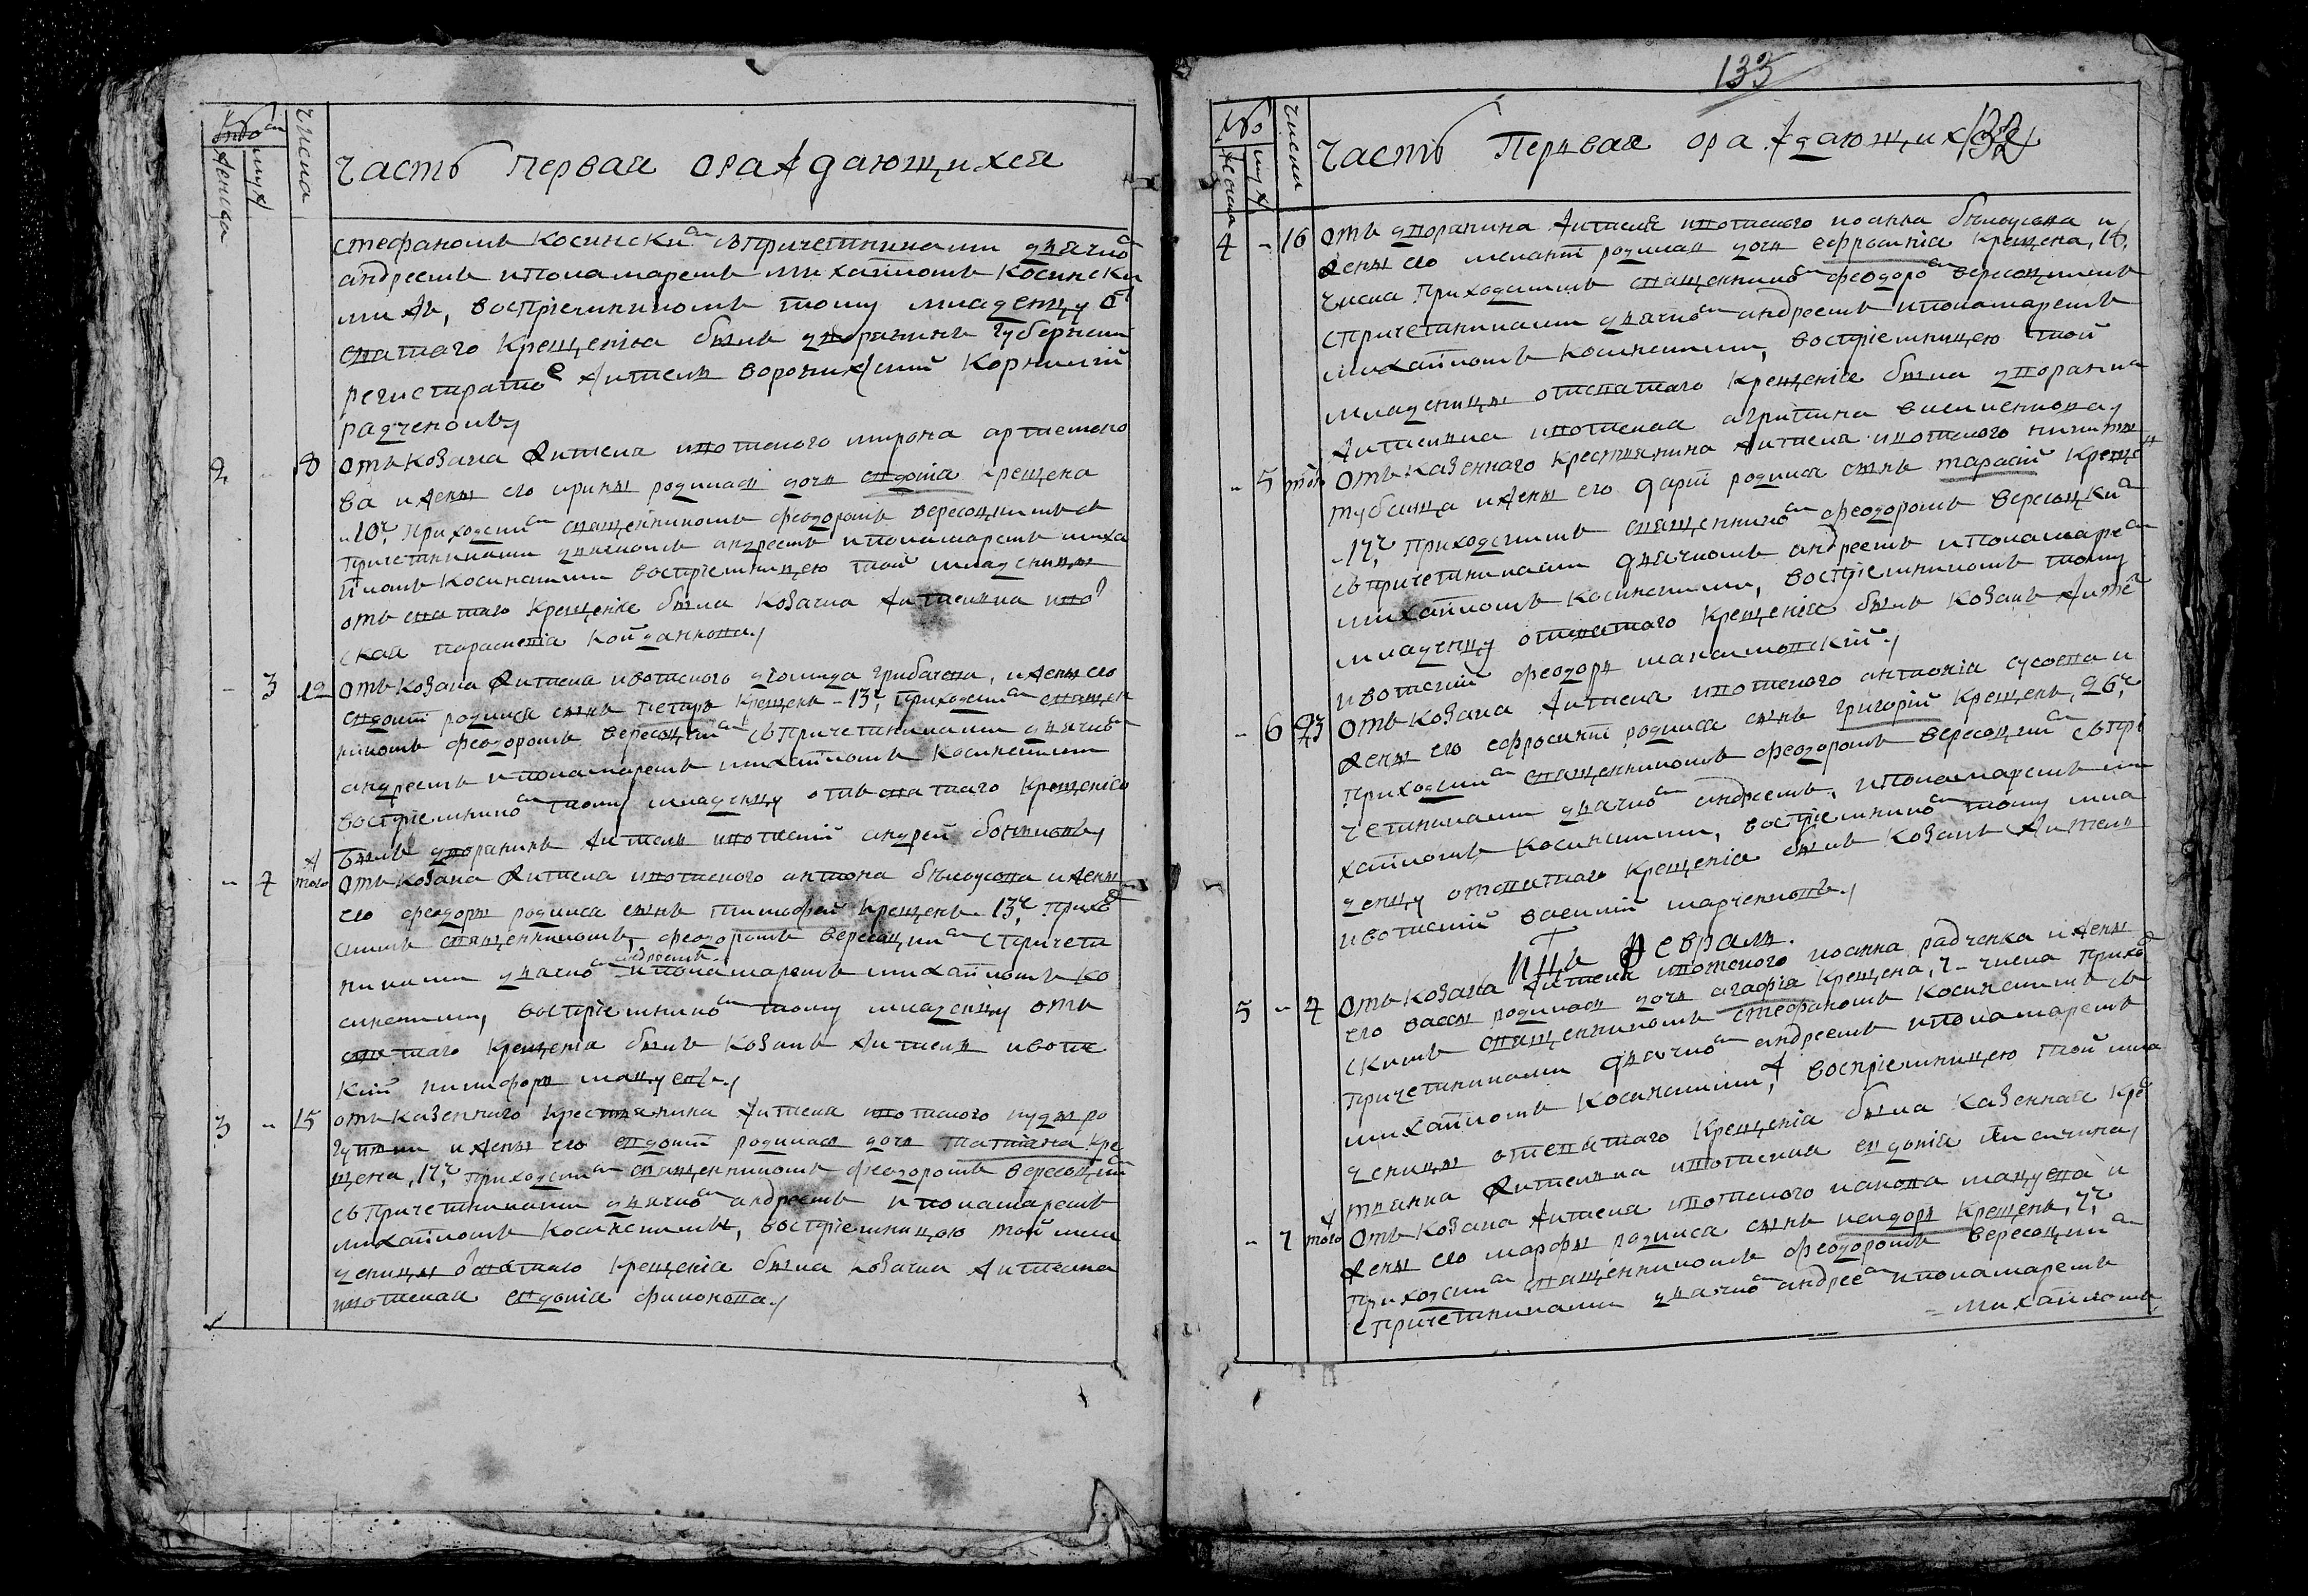 Число
часть первая ораждающихся
стефаномъ Косински съпричетниками дьячко
андреемъ ипономаремъ михайломъ Косински
ми же, воспріемникомъ тому младенцу о
святаго Крещенія былъ дворянинъ Губернски
регистраторе житель воронижскій Корнилій
радченокъ,
2 - 8 отъ Козака жителя ивотского мирона артемено
ва и жены его ирины родилась дочь евдокіа крещена
-10ч приходски священникомъ феодоромъ вересоцкимъ съ
причетниками дьячкомъ андреемъ ипономаремъ миха
йломъ Косинскими воспріемницею той младеницы
отъ святаго Крещеніе была Козачка жителька иво
ская параскевіа
- 3 12 отъ Козака жителя ивотского грибачева, и жены его
евдокіи родился сынъ петръ крещенъ -13ч приходски священ
никомъ феодоромъ вересоцки съпричетниками дьячко
андреемъ ипономаремъ михайломъ Косинскими
воспріемнико тому младенцу отъ святаго Крещеніа
былъ дворянинъ житель ивотскій андрей
- 4 того ж отъ Козака жителя ивотского антона белоусова и жены
его феодоры родился сынъ тимофей крещенъ -13ч прихо
скимъ священникомъ, феодоромъ вересоцки спричет
никами дьячко андреемъ ипономаремъ михайломъ Ко
синскими, воспріемнико тому младенцу отъ
святаго Крещеніа былъ Козакъ житель ивотс
кій никифоръ мацуевъ,
3 - 15 отъ Казенного крестьянина жителя ивотского
и жены его евдокіи родилась дочь татіана кре
щена, 17ч приходски священникомъ феодоромъ вересоцки
съпричетниками дьячко андреемъ ипономаремъ
михайломъ Косинскимъ, воспріемницею той мла
деницы о святаго Крещеніа была козачка жителька
ивотская евдокіа филонова,
133
132
№
Число
часть Первая ораждающихся
4 - 16 отъ дворянина жителя ивотского иоанна белоусова и
жены его меланіи родилась дочь ефросиніа крещена, 18,
числа приходскимъ священнико феодоро вересоцкимъ
спричетниками дьячко андреемъ ипономаремъ
михайломъ Косинскими, воспріемницею той
младеницы отсвятаго Крещеніе была дворянка
жителька ивотская агрипина
- 5 того отъ Казенного крестьянина жителя ивотского никиты
и жены его даріи родился сынъ тарасій Креще
-17ч приходскимъ священнико феодоромъ вересоцки
съпричетниками дьячкомъ андреемъ ипономаре
михайломъ Косинскими, воспріемникомъ тому
младенцу отсвятаго Крещеніа былъ Козакъ жите
ивотскій феодоръ
- 6 23 отъ Козака жителя ивотского антоніа сусоева и
жены его ефросиніи родился сынъ григорій Крещенъ, 26ч
приходски священникомъ феодоромъ вересоцки съпри
четниками дьячко андреемъ, ипономаремъ ми
хайломъ Косинскими, воспріемнико тому мла
денцу отсвятаго Крещеніа былъ Козакъ житель
ивотскій василій марченковъ,
Февраль.
5 - 4 отъ Козака жителя ивотского иоанна радченка и жены
его вассы родилась дочь агафіа крещена, - числа прихо
скимъ священникомъ стефаномъ Косинскимъ съ
причетниками дьячко андреемъ ипономаремъ
михайломъ Косинскими ж воспріемницею той мла
деницы отсвятаго Крещеніа была Казеннае кре
тьянка жителька ивотская евдокіа
- 7 того ж отъ Козака жителя ивотского мацуева и
жены его марфы родился сынъ исидоръ Крещенъ, 7ч
приходски священникомъ феодоромъ вересоцки
спричетниками дьячко андрее ипономаремъ
- михайломъ